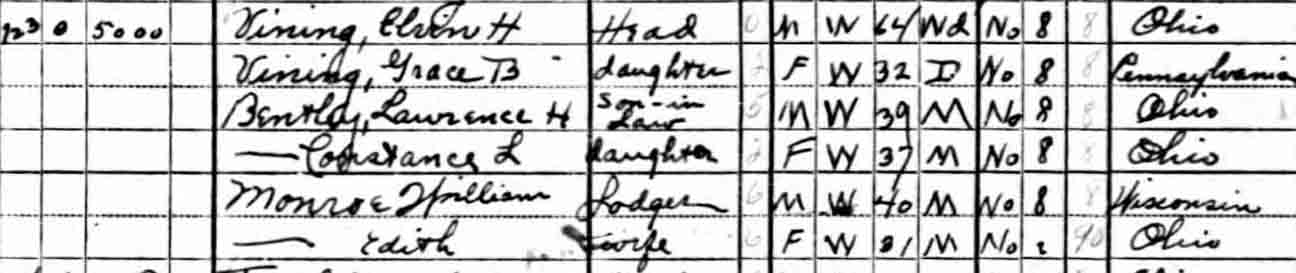 123 0 5000 Vining, Elvin H Head 0 M W 64 Wd No 8 8 Ohio
Vining, Grace B daughter 2 F W 32 D No 8 8 Pennsylvania
Bentley, Lawrence H Son-in Law 5 M W 39 M No 8 8 Ohio
— Constance L daughter 2 F W 37 M No 8 8 Ohio
Monroe William Lodger 6 M W 40 M No 8 8 Wisconsin
— Edith wife 6 F W 31 M No 90 Ohio